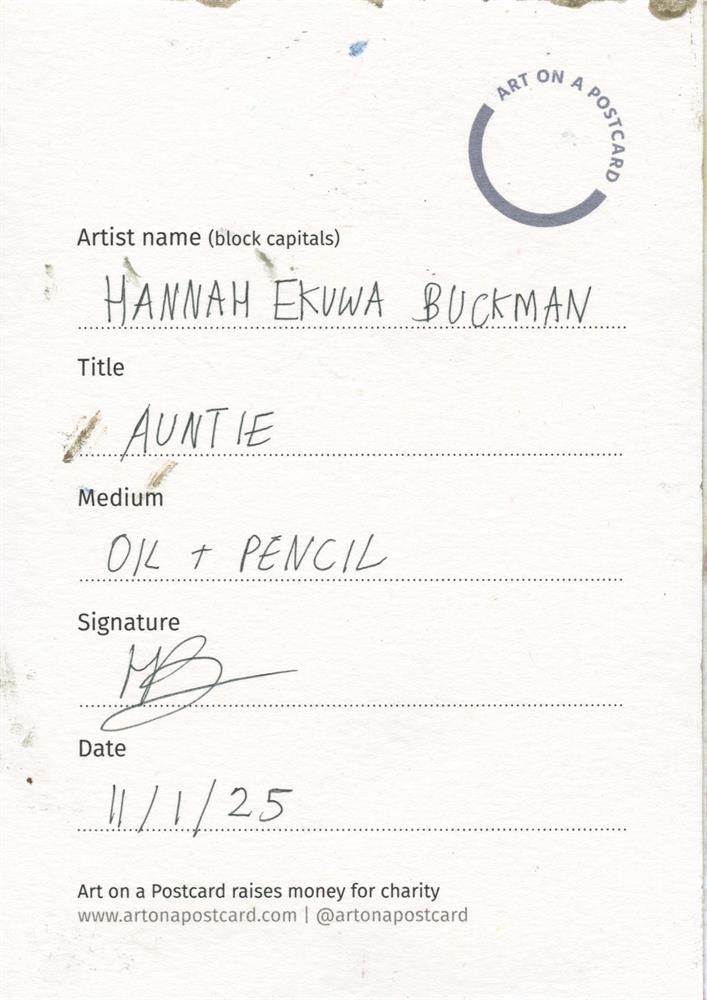 ART ON A POSTCARD
Artist name (block capitals)
HANNAH EKUWA BUCKMAN
Title
AUNTIE
Medium
OIL + PENCIL
Signature
HB
Date
11/1/25
Art on a Postcard raises money for charity
www.artonapostcard.com | @artonapostcard